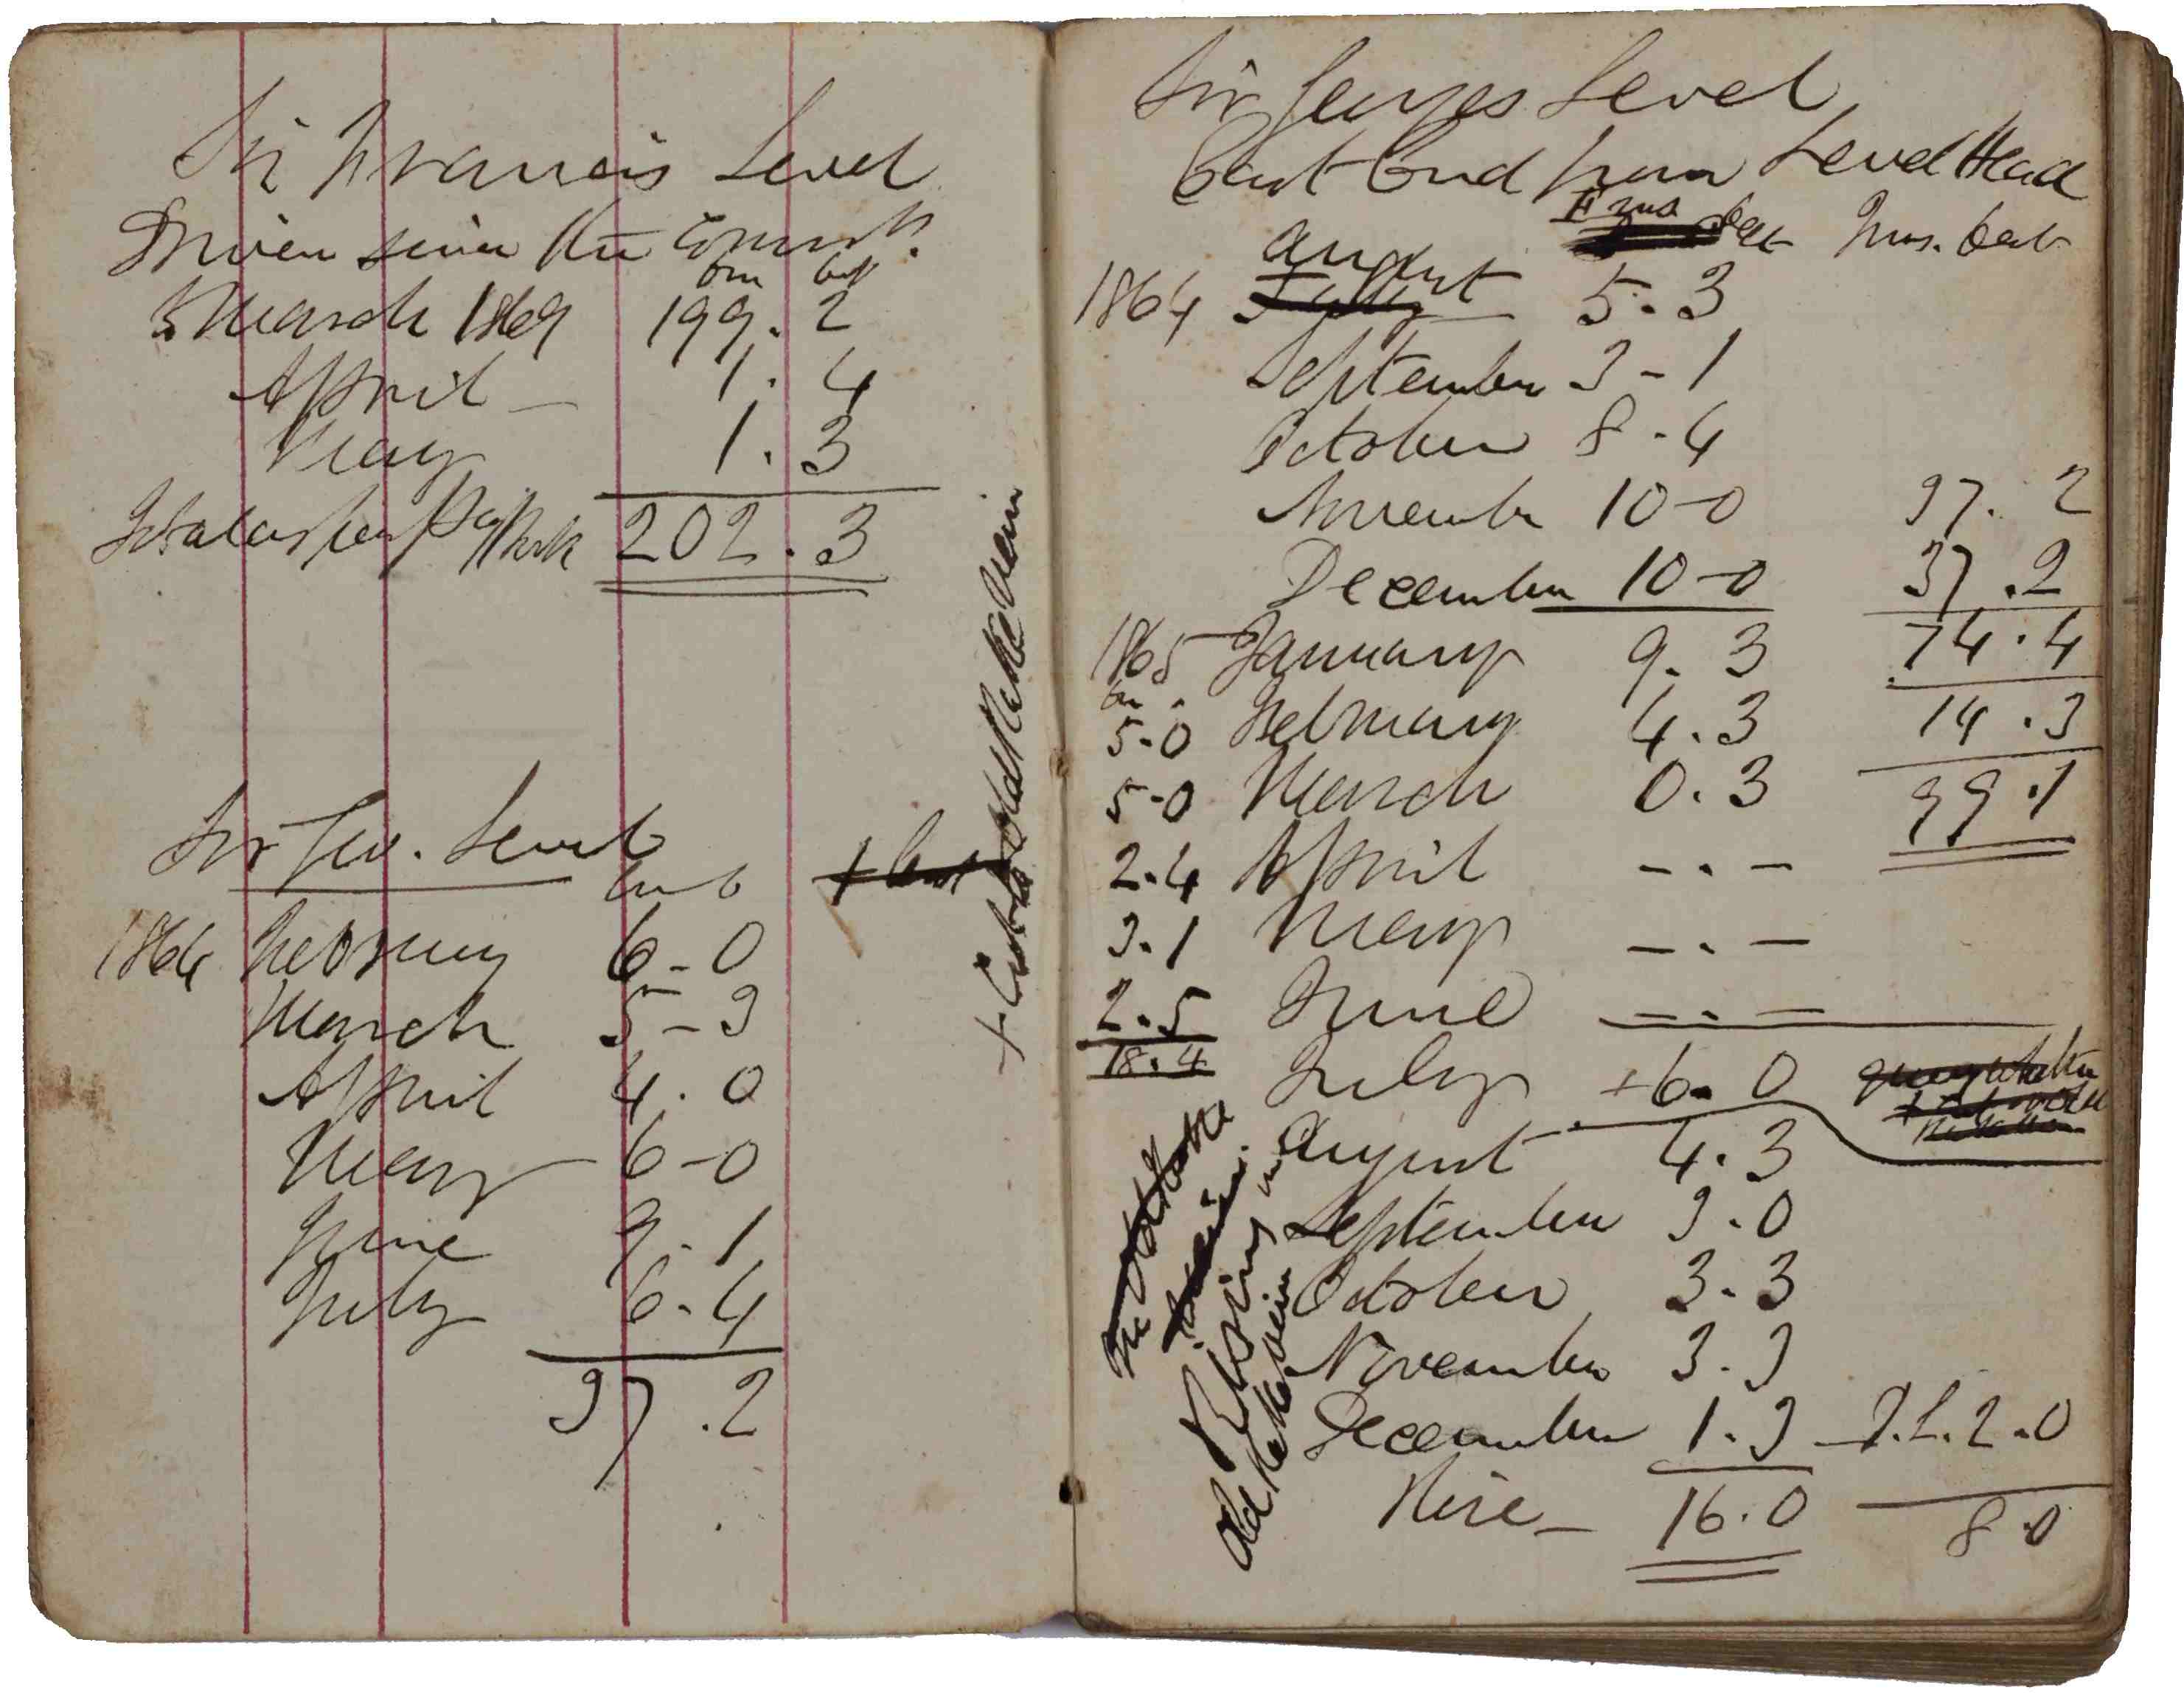 Sir Francis Level
Driven since the Commt.
fm feet
to March 1869 199. 2
April — 1. 4
May 1. 3
Total as per Pay Book 202. 3
+ Cut Old Rake Vein
Sir Geo. Level
1864 February 6 - 0
March 5 - 3
April 4. 0
May — 6 - 0
June 9 - 1
July 6 - 4
37 . 2
Sir Georges Level
East End from Level Head
Fms feet Fms. feet
August
1864 July — 5. 3
September 3 - 1
October 8 - 4
November 10 - 0 37. 2
December 10 - 0 37 . 2
1865 — January 9. 3 74 . 4
5 - 0 February 4. 3 14 . 3
5 - 0 March 0. 3 99 . 1
2. 4 April — . —
3. 1 May — . —
2. 5 June — . —
18. 4
July + 6. 0
August 4. 3
September 3. 0
October 3. 3
November 3. 3
December 1. 3 — 2. 0
Rise — 16. 0 8. 0
in Old Rake
Vein.
Rising in
Old Rake Vein